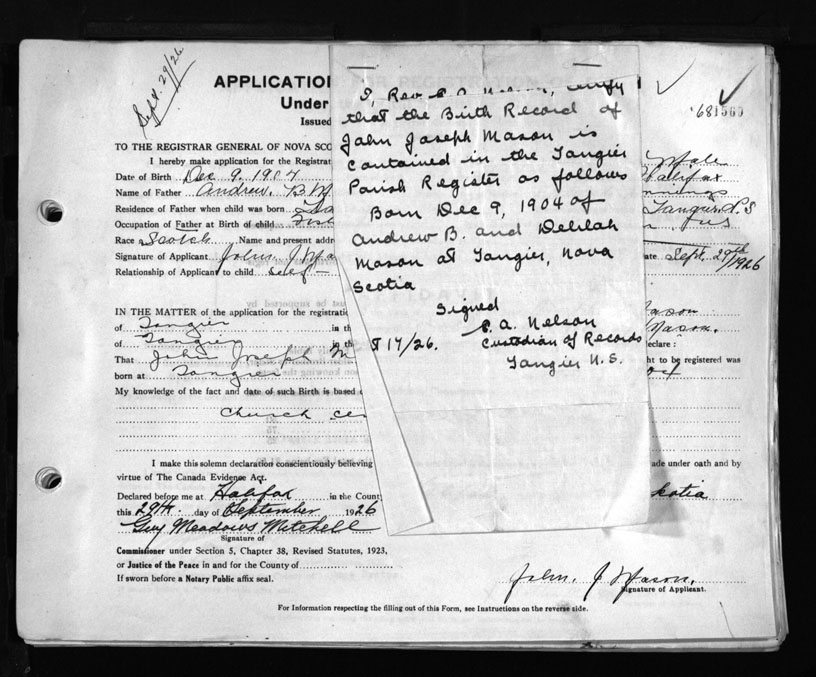 Sept. 29/26
APPLICATION FOR REGISTRATION OF
681560
Under
Issued
TO THE REGISTRAR GENERAL OF NOVA SCO
I hereby make application for the Registrat
Male
Date of Birth Dec 9. 1904
Halifax
Name of Father Andrew. B M
Residence of Father when child was born
Tangier N.S
Occupation of Father at Birth of child
Race Scotch Name and present addr
Signature of Applicant John. J Ma
ate Sept. 29th/1926
Relationship of Applicant to child self
I, Rev E. A. Nelson, certify
that the Birth Record of
John Joseph Mason is
contained in the Tangier
Parish Register as follows
Born Dec 9, 1904 of
Andrew B. and Delilah
Mason at Tangier, Nova
Scotia
Signed
E. A. Nelson
8 17/26. Custodian of Records
Tangier N.S.
IN THE MATTER of the application for the registratio
Mason
of Tangier in th
Mason.
of Tangier in th
eclare :
That John Joseph M
ht to be registered was
born at Tangier
My knowledge of the fact and date of such Birth is based o
Church cer
I make this solemn declaration conscientiously believing
ade under oath and by
virtue of The Canada Evidence Act.
Declared before me at Halifax in the County
cotia
this 29th. day of September 1926
Guy Meadows Mitchell
Signature of
Commissioner under Section 5, Chapter 38, Revised Statutes, 1923,
or Justice of the Peace in and for the County of
If sworn before a Notary Public affix seal.
John. J Mason.
Signature of Applicant.
For Information respecting the filling out of this Form, see Instructions on the reverse side.